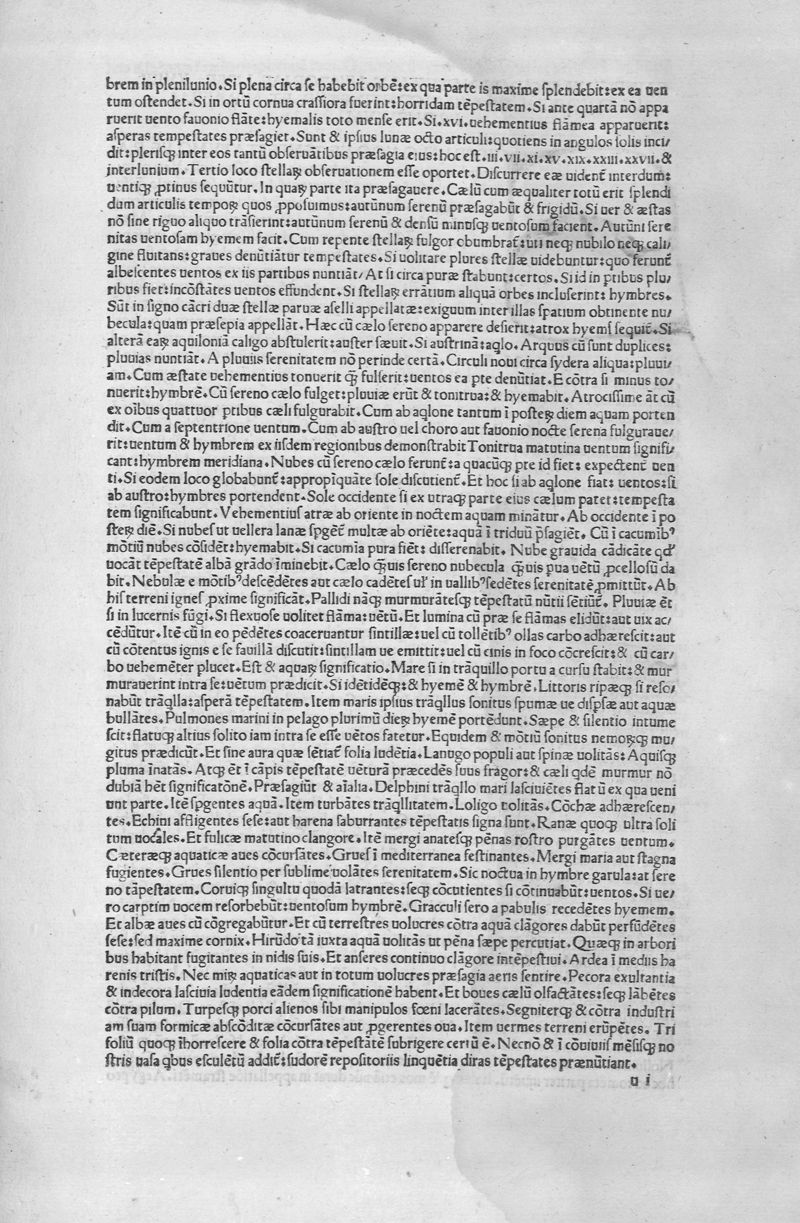 brem in plenilunio. Si plena circa se habebit orbē: ex qua parte is maxime ſplendebit: ex ea uen
tum oſtendet. Si in ortū cornua craſſiora fuerint: horridam tēpeſtatem. Si ante quartā nō appa
ruerit uento fauonio flāte: hyemalis toto menſe erit. Si .xvi. uehementius flāmea apparuerit:
aſperas tempeſtates præſagiet. Sunt & ipſius lunæ octo articuli: quotiens in angulos ſolis inci/
dit: pleriſqꝫ inter eos tantū obſeruātibus præſagia eius: hoc eſt .iii. vii. xi. xv. xix. xxiii. xxvii. &
interlunium. Tertio loco ſtellaꝝ obſeruationem eſſe oportet. Diſcurrere eæ uident᷑ interdum:
uentiqꝫ ꝓtinus ſequūtur. In quaꝝ parte ita præſagauere. Cælū cum æqualiter totū erit ſplendi
dum articulis tempoꝝ quos ꝓpoſuimus: autūnum ſerenū præſagabūt & frigidū. Si uer & æſtas
nō ſine riguo aliquo trāſierint: autūnum ſerenū & denſū minuſqꝫ uentoſum facient. Autūni ſere
nitas uentoſam hyemem facit. Cum repente ſtellaꝝ fulgor obumbrat᷑: uti neqꝫ nubilo neqꝫ cali/
gine fluitans: graues denūtiatur tempeſtates. Si uolitare plures ſtellæ uidebuntur: quo ferunt᷑
albeſcentes uentos ex iis partibus nuntiāt/ At ſi circa puræ ſtabunt: certos. Si id in ꝑtibus plu/
ribus fiet: incōſtātes uentos effundent. Si ſtellaꝝ errātium aliquā orbes incluſerint: hymbres.
Sūt in ſigno cācri duæ ſtellæ paruæ aſelli appellatæ: exiguum inter illas ſpatium obtinente nu/
becula: quam præſepia appellāt. Hæc cū cælo ſereno apparere deſierit: atrox hyemſ ſequit᷑. Si
alterā eaꝝ aquiloniā caligo abſtulerit: auſter ſæuit. Si auſtrinā: aqlo. Arquus cū ſunt duplices:
pluuias nuntiāt. A pluuiis ſerenitatem nō perinde certā. Circuli noui circa ſydera aliqua: pluui/
am. Cum æſtate uehementius tonuerit qꝫ fulſerit: uentos ea ꝑte denūtiat. E cōtra ſi minus to/
nuerit: hymbrē. Cū ſereno cælo fulget: pluuiæ erūt & tonitrua: & hyemabit. Atrociſſime āt cū
ex oībus quattuor ꝑtibus cæli fulgurabit. Cum ab aqlone tantum ī poſteꝝ diem aquam porten
dit. Cum a ſeptentrione uentum. Cum ab auſtro uel choro aut fauonio nocte ſerena fulguraue/
rit: uentum & hymbrem ex iiſdem regionibus demonſtrabit Tonitrua matutina uentum ſignifi/
cant: hymbrem meridiana. Nubes cū ſereno cælo ferunt᷑: a quacūqꝫ ꝑte id fiet: expectent᷑ uen
ti. Si eodem loco globabunt᷑: appropīquāte ſole diſcutient᷑. Et hoc ſi ab aqlone fiat: uentos: ſi
ab auſtro: hymbres portendent. Sole occidente ſi ex utraqꝫ parte eius cælum patet: tempeſta
tem ſignificabunt. Vehementiuſ atræ ab oriente in noctem aquam minātur. Ab occidente ī po
ſteꝝ diē. Si nubeſ ut uellera lanæ ſpgēt᷑ multæ ab oriēte: aquā ī triduū p̄ſagiēt. Cū ī cacumibꝰ
mōtiū nubes cōſidēt: hyemabit. Si cacumīa pura fiēt: diſſerenabit. Nube grauida cādicāte qd᷑
uocāt tēpeſtatē albā grādo īminebit. Cælo qꝫuis ſereno nubecula qꝫuis ꝑua uētū ꝓcelloſū da
bit. Nebulæ e mōtibꝰ deſcēdētes aut cælo cadēteſ ul᷑ in uallibꝰ ſedētes ſerenitatē ꝓmittūt. Ab
hiſ terreni igneſ ꝓxime ſignificāt. Pallidi nāqꝫ murmurāteſqꝫ tēpeſtatū nūtii ſētiūt᷑. Pluuiæ ēt
ſi in lucernis fūgi. Si flexuoſe uolitet flāma: uētū. Et lumina cū præ ſe flāmas elidūt: aut uix ac/
cēdūtur. Itē cū in eo pēdētes coaceruantur ſintillæ: uel cū tollētibꝰ ollas carbo adhæreſcit: aut
cū cōtentus ignis e ſe fauillā diſcutit: ſintillam ue emittit: uel cū cinis in foco cōcreſcit: & cū car/
bo uehemēter plucet. Eſt & aquaꝝ ſignificatio. Mare ſi in trāquillo portu a curſu ſtabit: & mur
murauerint intra ſe: uētum prædicit. Si idētidēqꝫ: & hyemē & hymbrē. Littoris ripæqꝫ ſi reſo/
nabūt trāqlla: aſperā tēpeſtatem. Item maris ipſius trāqllus ſonitus ſpumæ ue diſpſæ aut aquæ
bullātes. Pulmones marini in pelago plurimū dieꝝ hyemē portēdunt. Sæpe & ſilentio intume
ſcit: flatuqꝫ altius ſolito iam intra ſe eſſe uētos fatetur. Equidem & mōtiū ſonitus nemoꝝqꝫ mu/
gitus prædicūt. Et ſine aura quæ ſētiat᷑ folia ludētia. Lanugo populi aut ſpinæ uolitās: Aquiſqꝫ
pluma īnatās. Atqꝫ ēt ī cāpis tēpeſtatē uētūrā præcedēs ſuus fragor: & cæli qdē murmur nō
dubiā hēt ſignificatōnē. Præſagiūt & aīalia. Delphini trāqllo mari laſciuiētes flatū ex qua ueni
unt parte. Itē ſpgentes aquā. Item turbātes trāqllitatem. Loligo uolitās. Cōchæ adhæreſcen/
tes. Echini affligentes ſeſe: aut harena ſaburrantes tēpeſtatis ſigna ſunt. Ranæ quoqꝫ ultra ſoli
tum uocales. Et fulicæ matutino clangore. Itē mergi anateſqꝫ pēnas roſtro purgātes uentum.
Cæteræqꝫ aquaticæ aues cōcurſātes. Grueſ ī mediterranea feſtinantes. Mergi maria aut ſtagna
fugientes. Grueſ ſilentio per ſublime uolātes ſerenitatem. Sic noctua in hymbre garula: at ſere
no tāpeſtatem. Coruiqꝫ ſingultu quodā latrantes: ſeqꝫ cōcutientes ſi cōtinuabūt: uentos. Si ue/
ro carptim uocem reſorbebūt: uentoſum hymbrē. Gracculi ſero a pabulis recedētes hyemem.
Et albæ aues cū cōgregabūtur. Et cū terreſtres uolucres cōtra aquā clāgores dabūt perfūdētes
ſeſe: ſed maxime cornix. Hirūdo tā iuxta aquā uolitās ut pēna ſæpe percutiat. Quæqꝫ in arbori
bus habitant fugitantes in nidis ſuis. Et anſeres continuo clāgore intēpeſtiui. Ardea ī mediis ha
renis triſtis. Nec miꝝ aquaticas aut in totum uolucres præſagia aeris ſentire. Pecora exultantia
& indecora laſciuia ludentia eādem ſignificationē habent. Et boues cælū olfactātes: ſeqꝫ lābētes
cōtra pilum. Turpeſqꝫ porci alienos ſibi manipulos fœni lacerātes. Segniterqꝫ & cōtra induſtri
am ſuam formicæ abſcōditæ cōcurſātes aut ꝓgerentes oua. Item uermes terreni erūpētes. Tri
foliū quoqꝫ īhorreſcere & folia cōtra tēpeſtātē ſubrigere certū ē. Necnō & ī cōuiuiiſ mēſiſqꝫ no
ſtris uaſa qbus eſculētū addit᷑: ſudorē repoſitoriis linquētia diras tēpeſtates prænūtiant.
u i